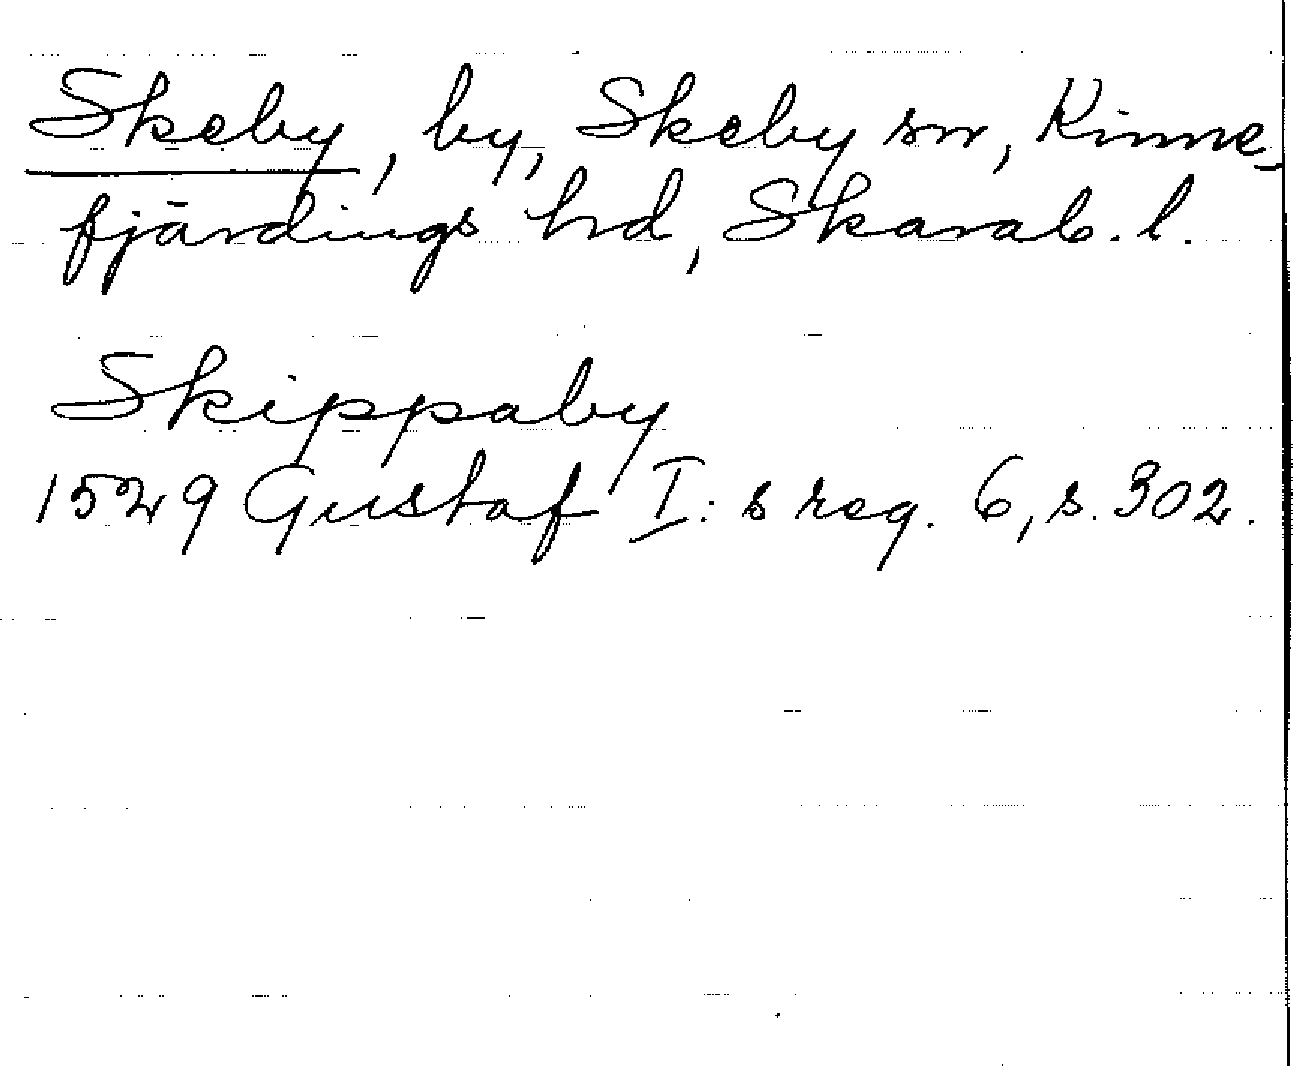 Skeby, by, Skeby sn, Kinne-
fjärdings hd, Skarab. l.
Skippaby
1529 Gustaf I: s reg. 6, s. 302.